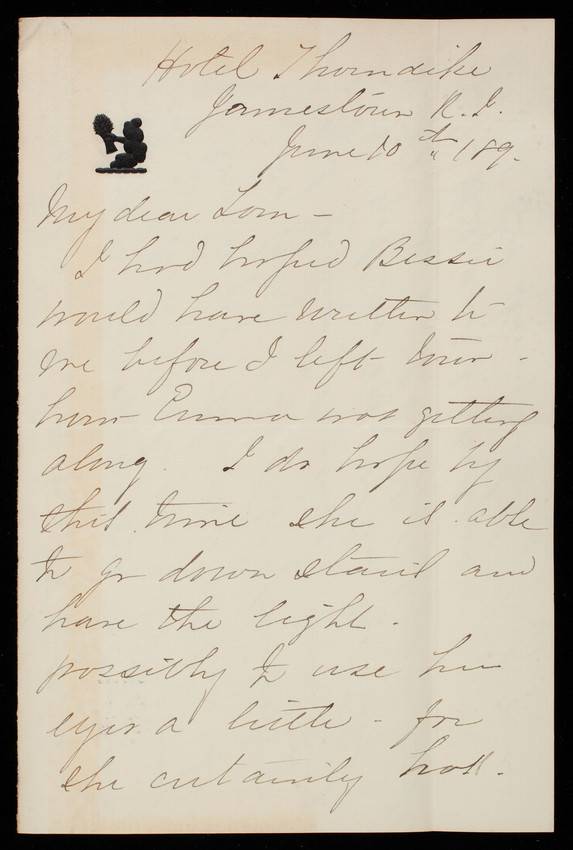 Hotel Thorndike
Jamestown R. I.
June 10th 189.
My dear Tom -
I had hoped Bessie
would have written to
me before I left town -
how Emma was getting
along. I do hope by
this time she is able
to go down stairs and
have the light.
possibly to use her
eyes a little - for
she certainly has.